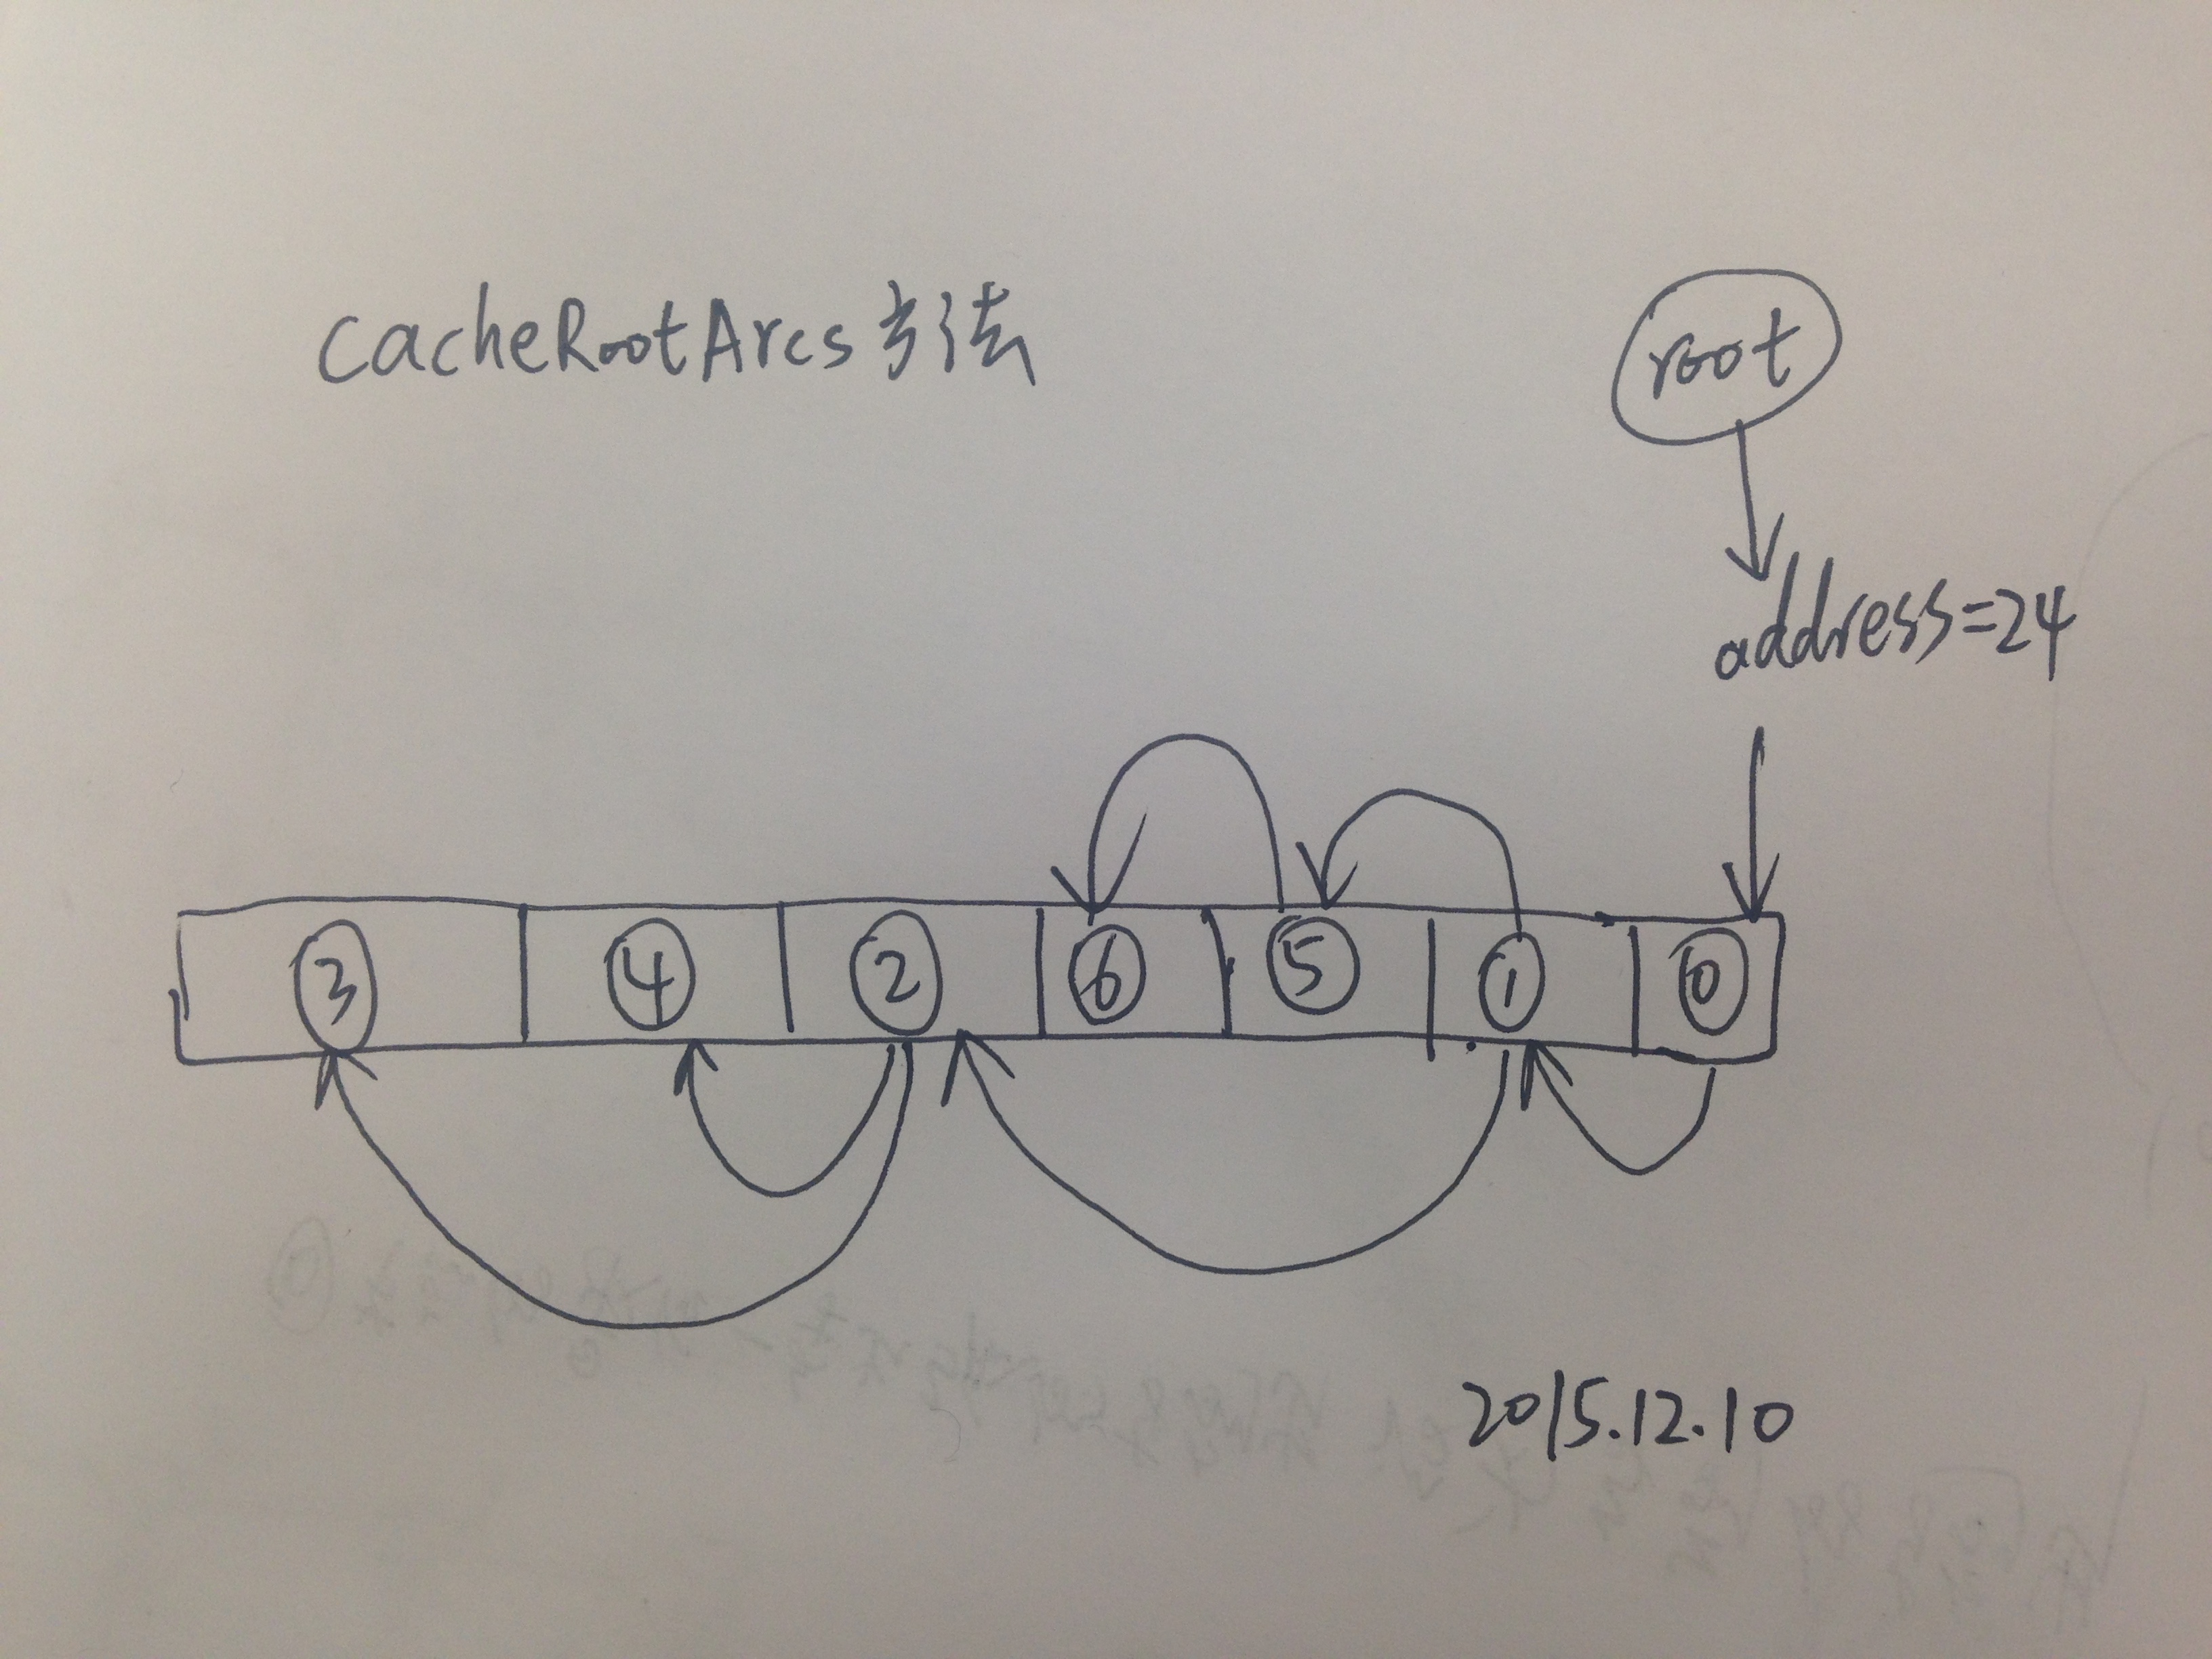 CacheRootArcs
root
address=24
③ ④ ② ⑥ ⑤ ① ⓪
2015.12.10